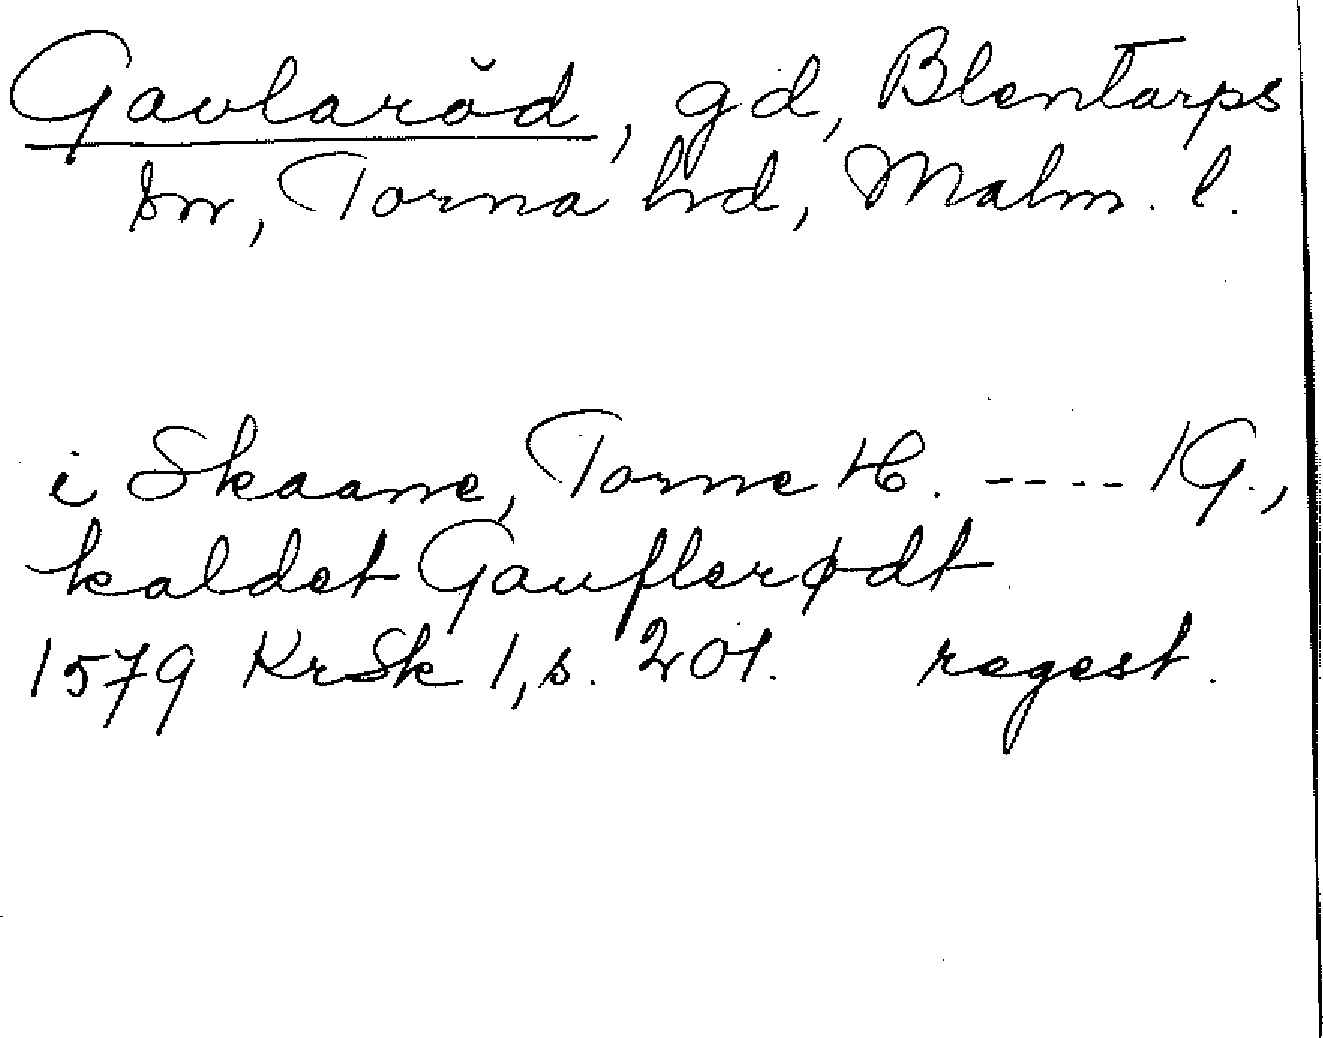 Gavlaröd, gd, Blentarps
sn, Torna hd, Malm. l.
i Skaane, Torne H. ---- 1 G.,
kaldet Gauflerødt
1579 KrSk 1, s. 201. regest.